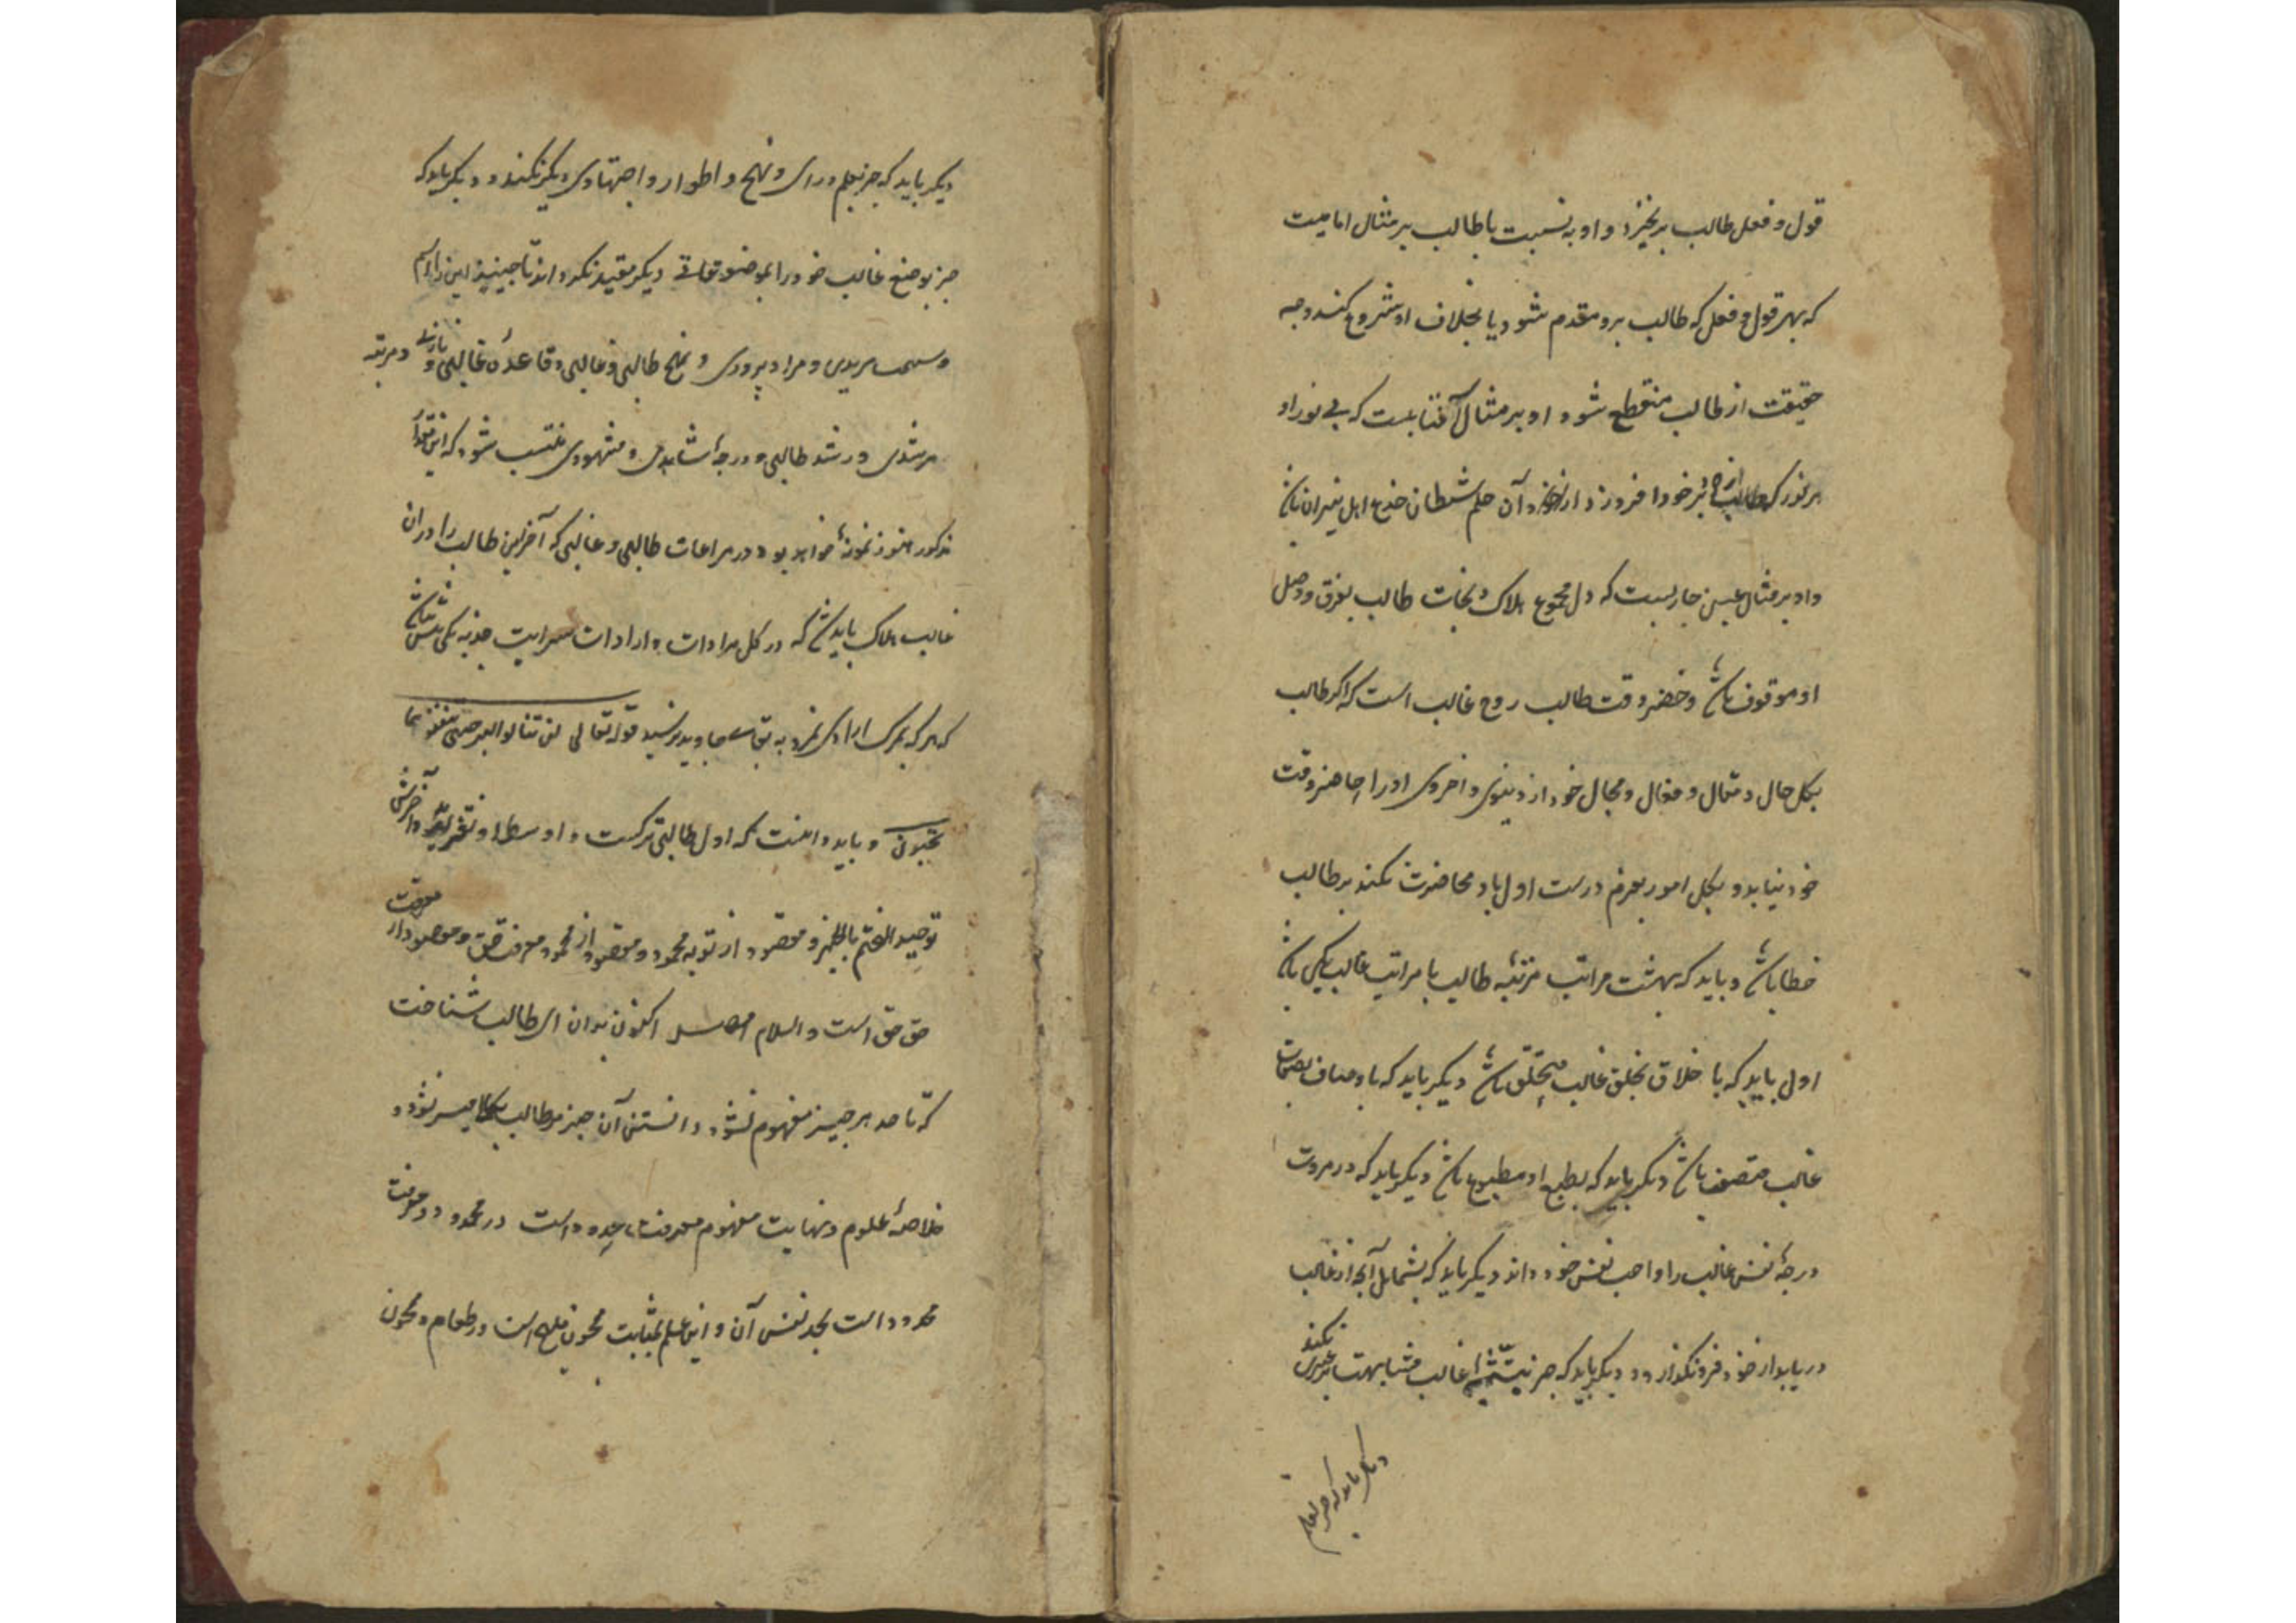 قول و فعل طالب برخیزد و او به نسبت با طالب بر مثال امامیت
که بهر قول و فعل که طالب برو مقدم شود یا بخلاف او شروع کند وجه
حقیقت از طالب منقطع شود او بر مثال آفتابست که بی نور او
هر نور که طالب از خود بر خود افروزد از و آن حلم شیطان خدع اهل نیران باش
و او بر مثال عیسی جاریست که دل مجموع هلاک و نجات طالب بفرق و وصل
او موقوف باش و خضر وقت طالب روح غالب است که اگر طالب
بکل حال و مقال و فعال و مجال خود از دنیوی و اخروی او را حاضر وقت
خود نیابد و بکل امور بعزم درست اول باو محاضرت نکند بر طالب
خطا باش و باید که بهشت مراتب مرتبه طالب با مراتب غالب یکی باش
اول باید که با خلاق بخلق غالب متخلق باش دیگر باید که باوصاف بصفات
غالب متصف باش دیگر باید که بطبع او مطبوع باش دیگر باید که در مروت
درجهٔ نفس غالب را واجب نفس خود داند دیگر باید که بشمایل آنچه از غالب
دریابد از خود فرو نگذارد و دیگر باید که جز غالب مشابهت بغیری نکند
دیگر باید که جز بعلم
دیگر باید که جز بعلم و رای و نهج و اطوار و اجتهاد دیگر نکند و دیگر باید که
جز بوضع غالب خود را بموضوعاتی دیگر مقید نگرداند تا چنین این را اسم
و سمت مریدی و مراد پروری و نهج طالبی و غالبی و قاعدهٔ غالبی و و مرتبه
مرشدی و رشد طالبی و درجهٔ شاهدی و مشهودی منتسب شود که این مقدار
مذکور هنوز نمونهٔ خواهد بود در مراعات طالبی و غالبی که آخر این طالب را در آن
غالب هلاک باید ش که در کل مرادات و ارادات سرایت جذبه
که هر که بمرک ارادی نمرد به بقاء جاوید نرسید قوله تعالی لن تنالوا البر حتی تنفقوا مما
تحبون و باید دانست که اول طالبی ترکست و اوسط او تفرید و آخرش
توحید المختم بالظهر و مقصود از توبه محمود و مقصود از محمود معرفت حق و مقصود از معرفت
حق حق است و السلام اکنون بدان ای طالب شناخت
که تا حد هر چیز مفهوم نشود دانستن آن چیز مر طالب میسر نشود و
خلاصهٔ علوم و نهایت مفهوم معرفت حدود است در محدود و معرفت
محدود است بحد نفس آن و این علم بمثابت معجون ملح است در طعام و معجون